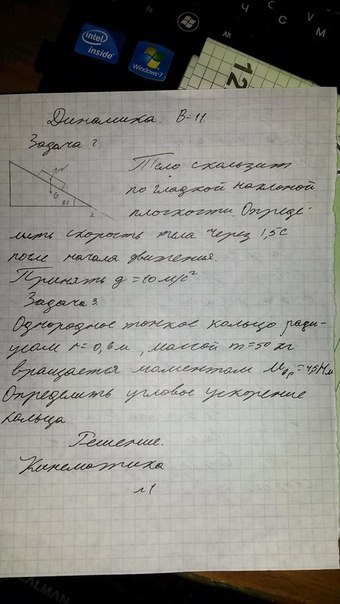 intel
inside
Windows 7
12
Динамика. В-11.
Задача 2.
N
G
35
Тело скользит
по гладкой наклоной
плоскости. Опреде-
лить скорость тела через 1,5с
после начала движения.
Принять g = 10 м/с²
Задача 3.
Однородное тонкое кольцо ради-
усом r = 0,6 м, массой m = 50 кг
вращается моментом
Определить угловое ускорение
кольца
Решение.
Кинематика